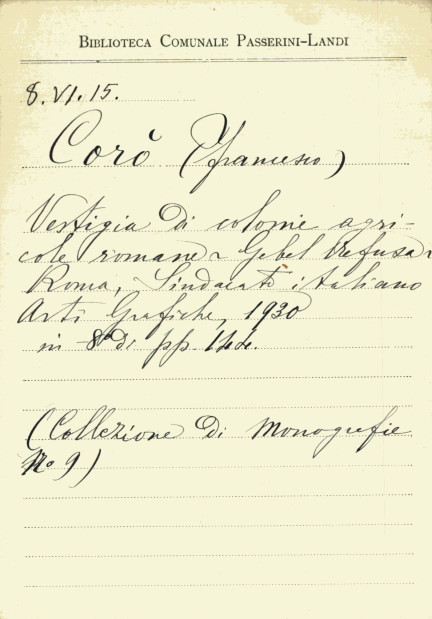 BIBLIOTECA COMUNALE PASSERINI-LANDI
8.VI.15.
Corò (Francesco)
Vestigia di colonie agri-
cole romane Gebel Nefusa
Roma, Sindacato italiano
Arti Grafiche, 1930
in -8° di pp.
(Collezione di Monografie
No 9)